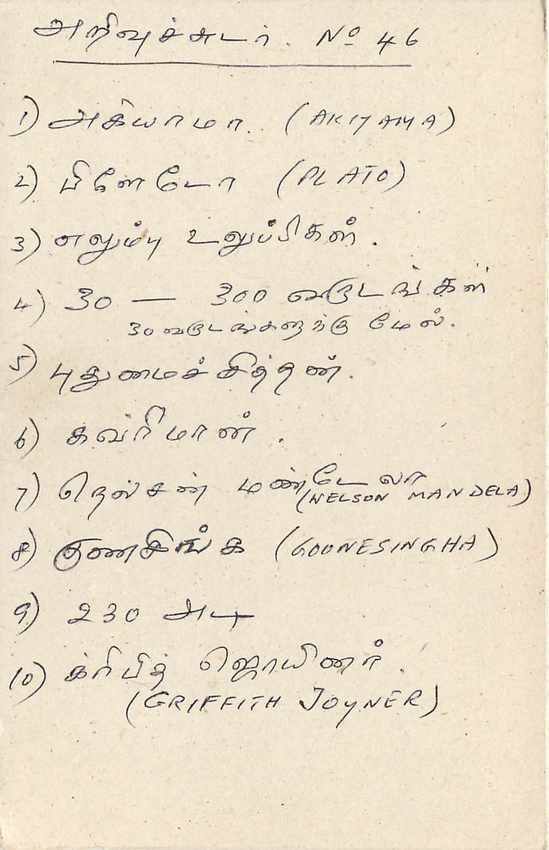 அறிவுச்சுடர். Nº 46
1) அகியாமா. (AKIYAMA)
2) பிளேடோ (PLATO)
3) எலும்பு உலுப்பிகள்.
4) 30 — 300 வருடங்கள்
30 வருடங்களுக்கு மேல்.
5) புதுமைச்சித்தன்.
6) கவரிமான்.
7) நெல்சன் மண்டேலா
(NELSON MANDELA)
8) குணசிங்க (GOONESINGHA)
9) 230 அடி
10) க்ரிபித் ஜொயினர்.
(GRIFFITH JOYNER)